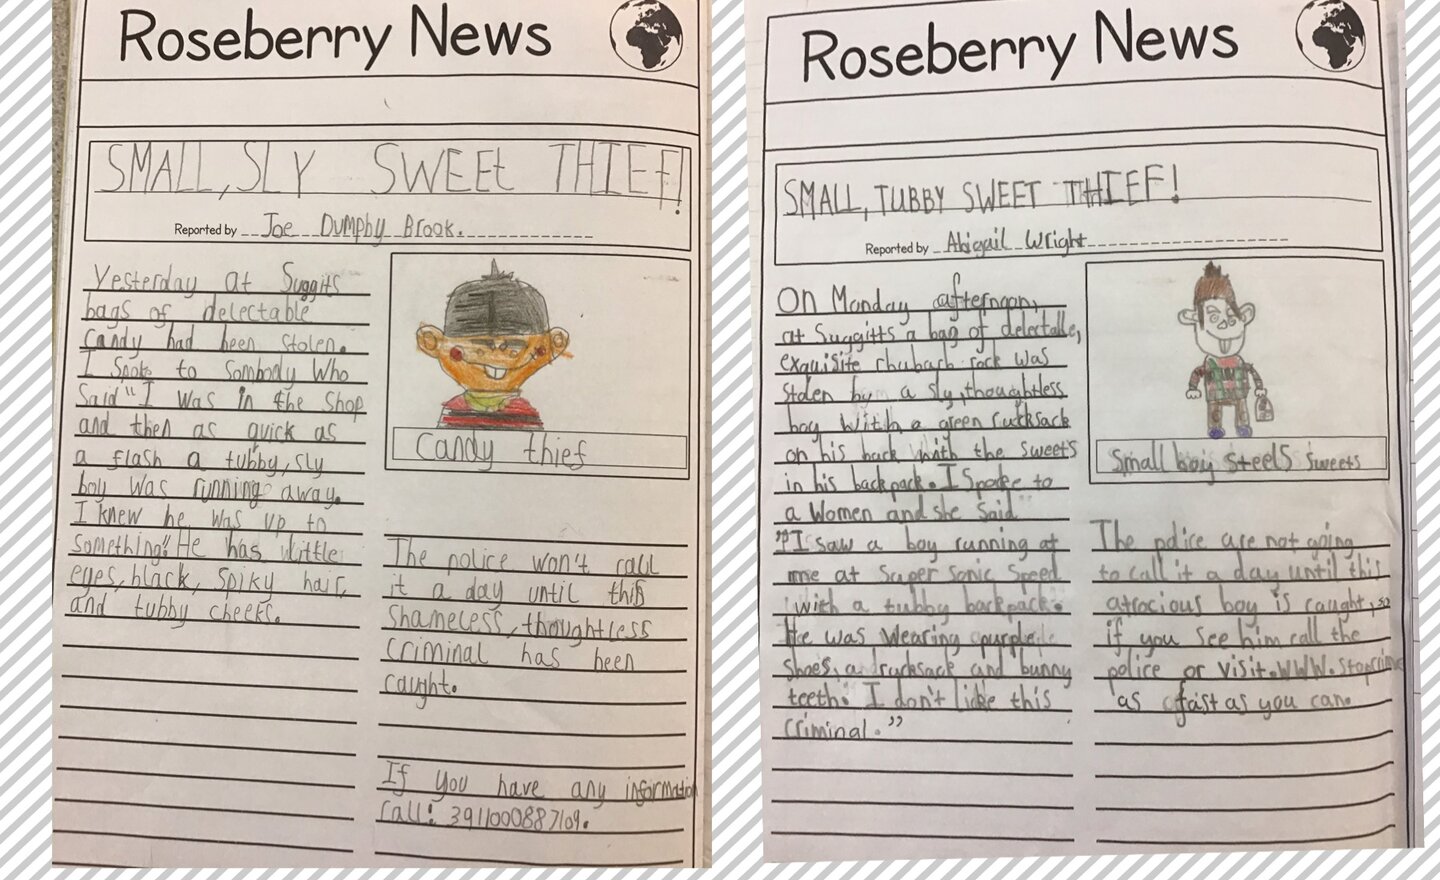 Roseberry News
SMALL, SLY SWEEt THIEF!
Reported by Joe Dumphy Brook.
Yesterday at Suggits
bags of delectable
Candy had been Stolen.
I Spok to Sombody Who
Said "I was in the Shop
and then as quick as
a flash a tubby, sly
boy was running away.
I knew he was up to
something." He has little
eyes, black, Spiky hair,
and tubby cheeks.
Candy thief
The police won't call
it a day until this
Shameless, thoughtless
Criminal has been
caught.
If you have any information
Call: 3911000887109.
Roseberry News
SMALL, TUBBY SWEET THIEF!
Reported by Abigail Wright
On Monday afternoon,
at Suggitts a bag of delectable,
exquisite rhubarb rock was
Stolen by a sly, thoughtless
boy with a green rucksack
on his back with the sweets
in his backpack. I Spoke to
a Women and she Said
"I saw a boy running at
me at Super Sonic Speed
with a tubby backpack.
He was Wearing purple
Shoes, a rucksack and bunny
teeth. I don't like this
Criminal."
Small boy Steels Sweets
The police are not going
to call it a day until this
atrocious boy is caught, so
if you see him call the
police or visit.WWW.Stopcrime
as fast as you can.